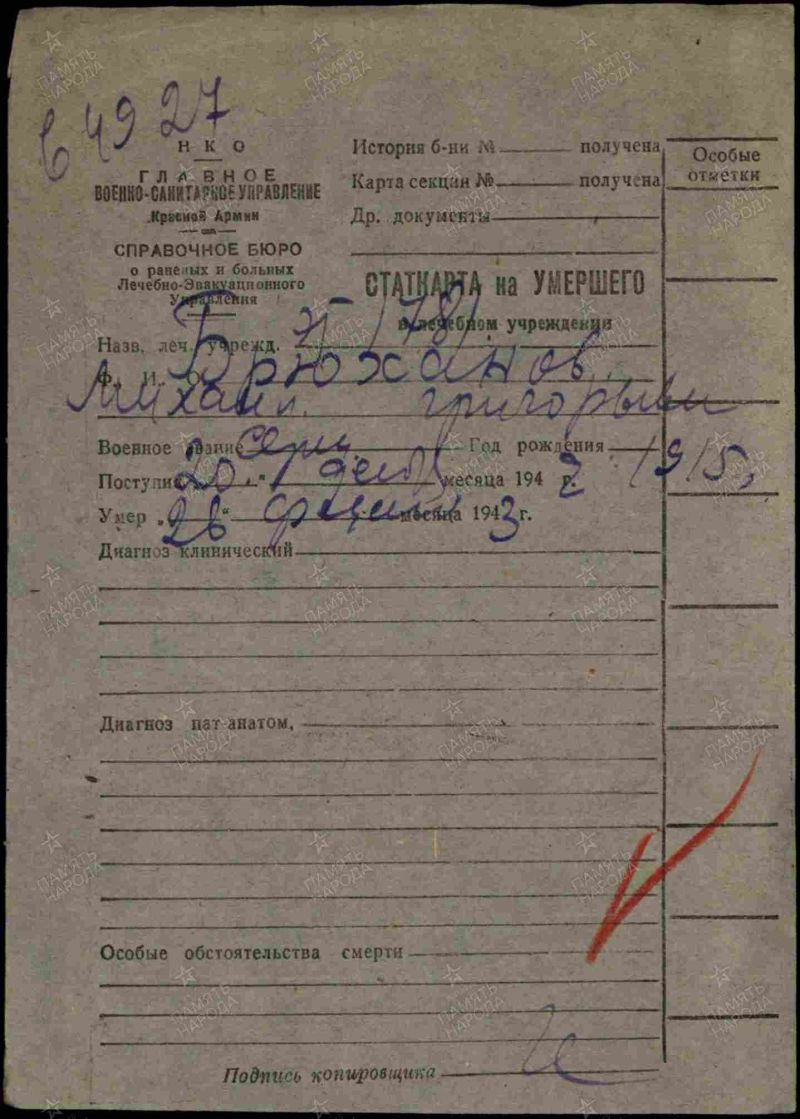 64927
НКО
ГЛАВНОЕ
ВОЕННО-САНИТАРНОЕ УПРАВЛЕНИЕ
Красной Армии
СПРАВОЧНОЕ БЮРО
о раненых и больных
Лечебно-Эвакуационного
Управления
История б-ни № получена
Карта секции № получена
Др. документы
Особые
отметки
СТАТКАРТА на УМЕРШЕГО
в лечебном учреждении
Назв. леч. учрежд.
Ф. И. О. Брюханов
Михаил Григорьеви
Военное звание Год рождения 1915
Поступил 20 " декаб месяца 1942 г.
Умер „26" месяца 1943 г.
Диагноз клинический
Диагноз пат-анатом.
Особые обстоятельства смерти
Подпись копировщика
ПАМЯТЬ
НАРОДА